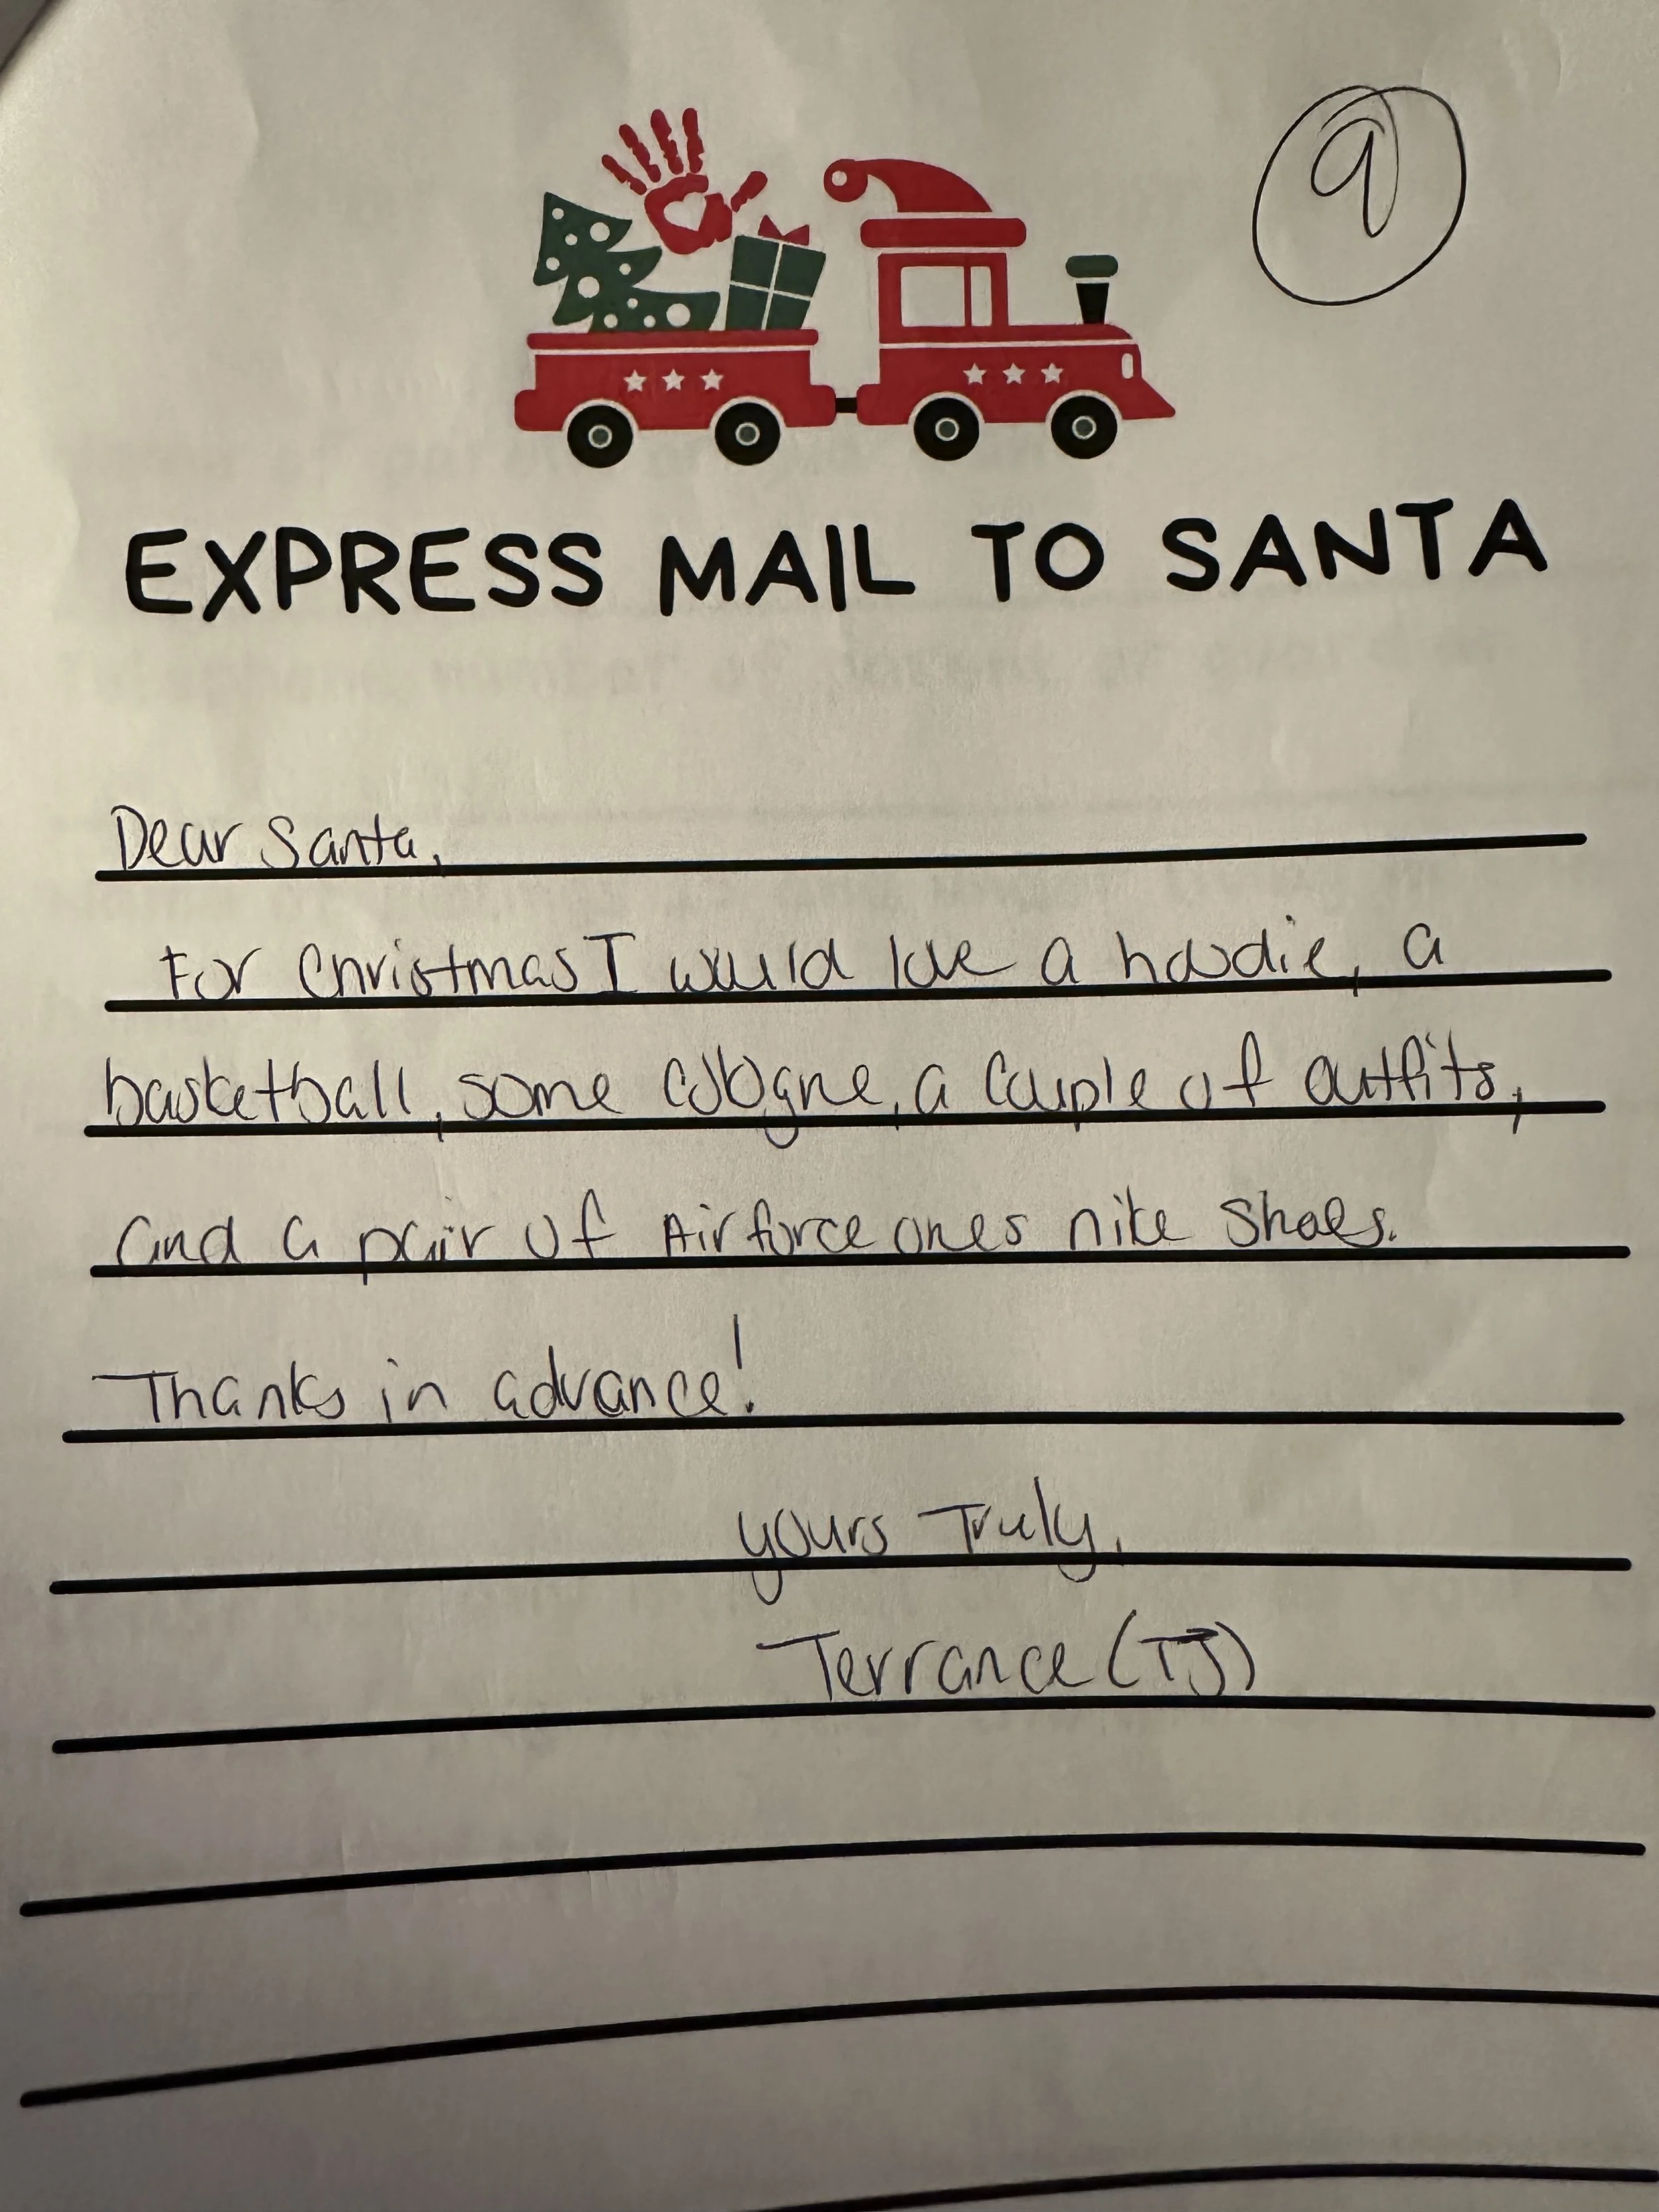 9
EXPRESS MAIL TO SANTA
Dear Santa,
For Christmas I would love a hoodie, a
basketball, some cologne, a couple of outfits,
and a pair of Airforce ones nike shoes.
Thanks in advance!
yours Truly,
Terrance (TJ)